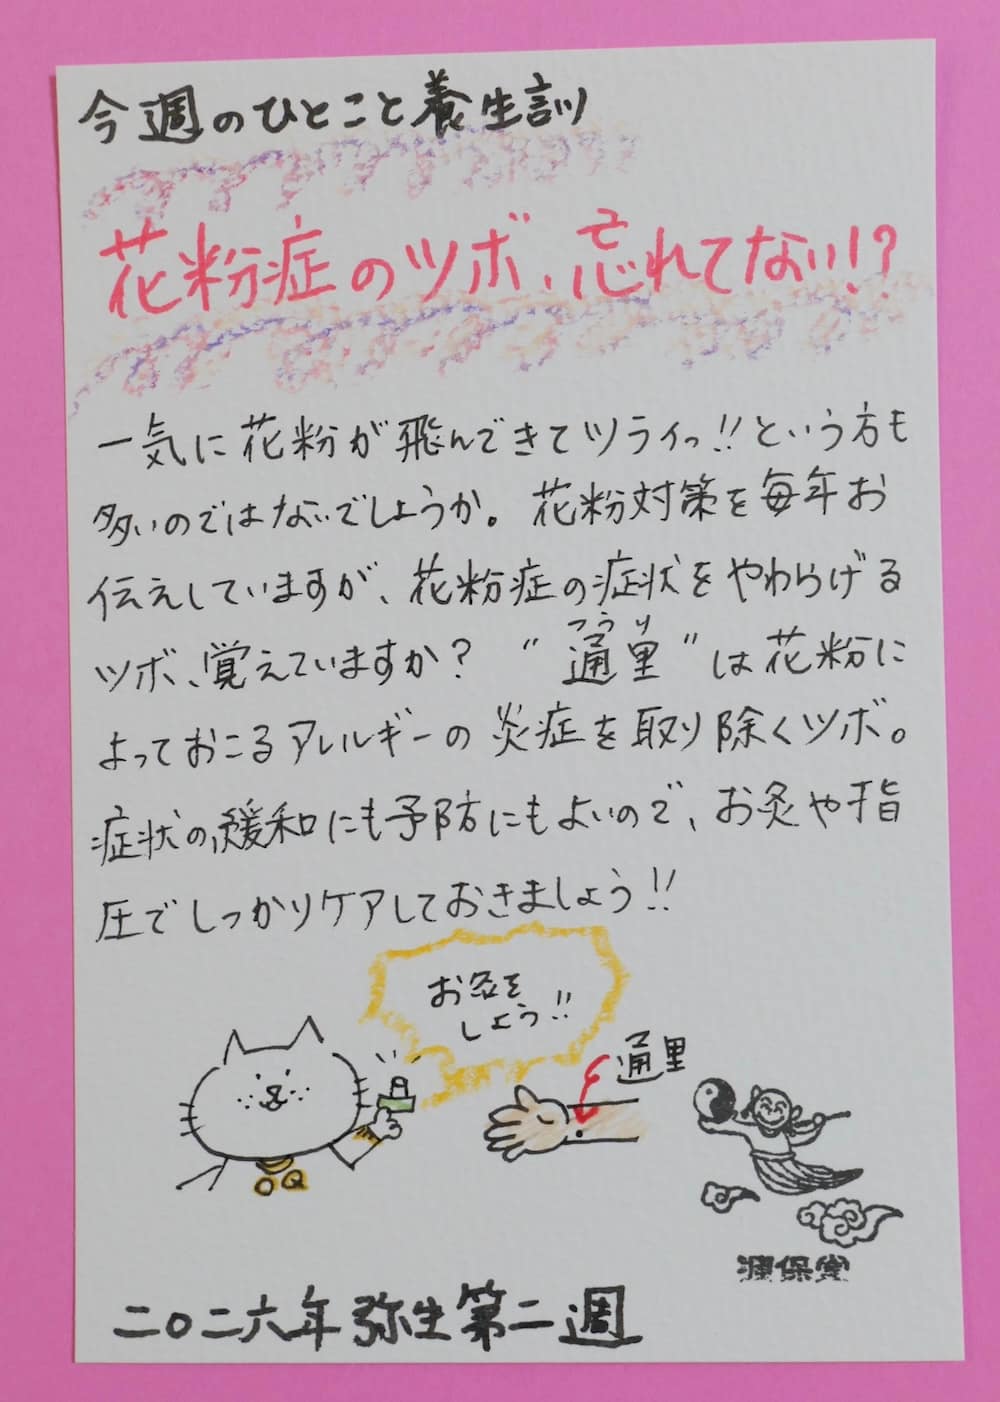 今週のひとこと養生訓
花粉症のツボ、忘れてない!?
一気に花粉が飛んできてツライっ!!という方も
多いのではないでしょうか。花粉対策を毎年お
伝えしていますが、花粉症の症状をやわらげる
ツボ、覚えていますか? “通里”は花粉に
つうり
よっておこるアレルギーの炎症を取り除くツボ。
症状の緩和にも予防にもよいので、お灸や指
圧でしっかりケアしておきましょう!!
お灸を
しよう!!
通里
源保堂
二〇二六年 弥生 第二週